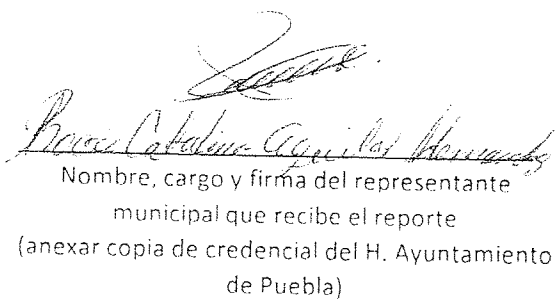 Rocio Catalina Aguilar Hernandez
Nombre, cargo y firma del representante
municipal que recibe el reporte
(anexar copia de credencial del H. Ayuntamiento
de Puebla)